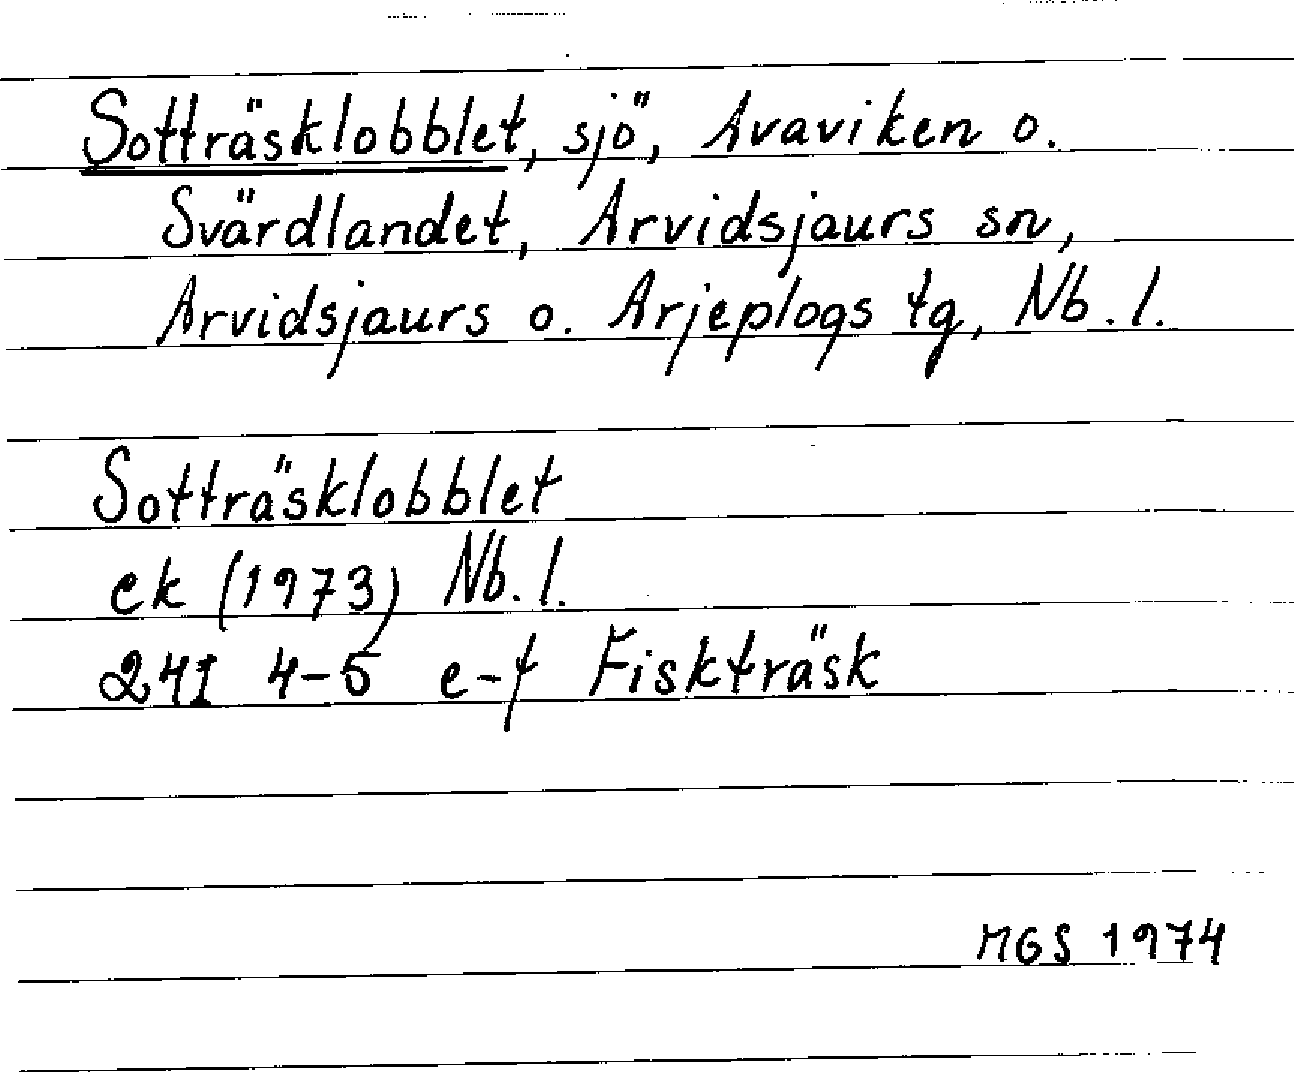 Sotträsklobblet, sjö, Avaviken o.
Svärdlandet, Arvidsjaurs sn,
Arvidsjaurs o. Arjeplogs tg, Nb. l.
Sotträsklobblet
ek (1973) Nb. l.
24I 4-5 e-f Fiskträsk
MGS 1974